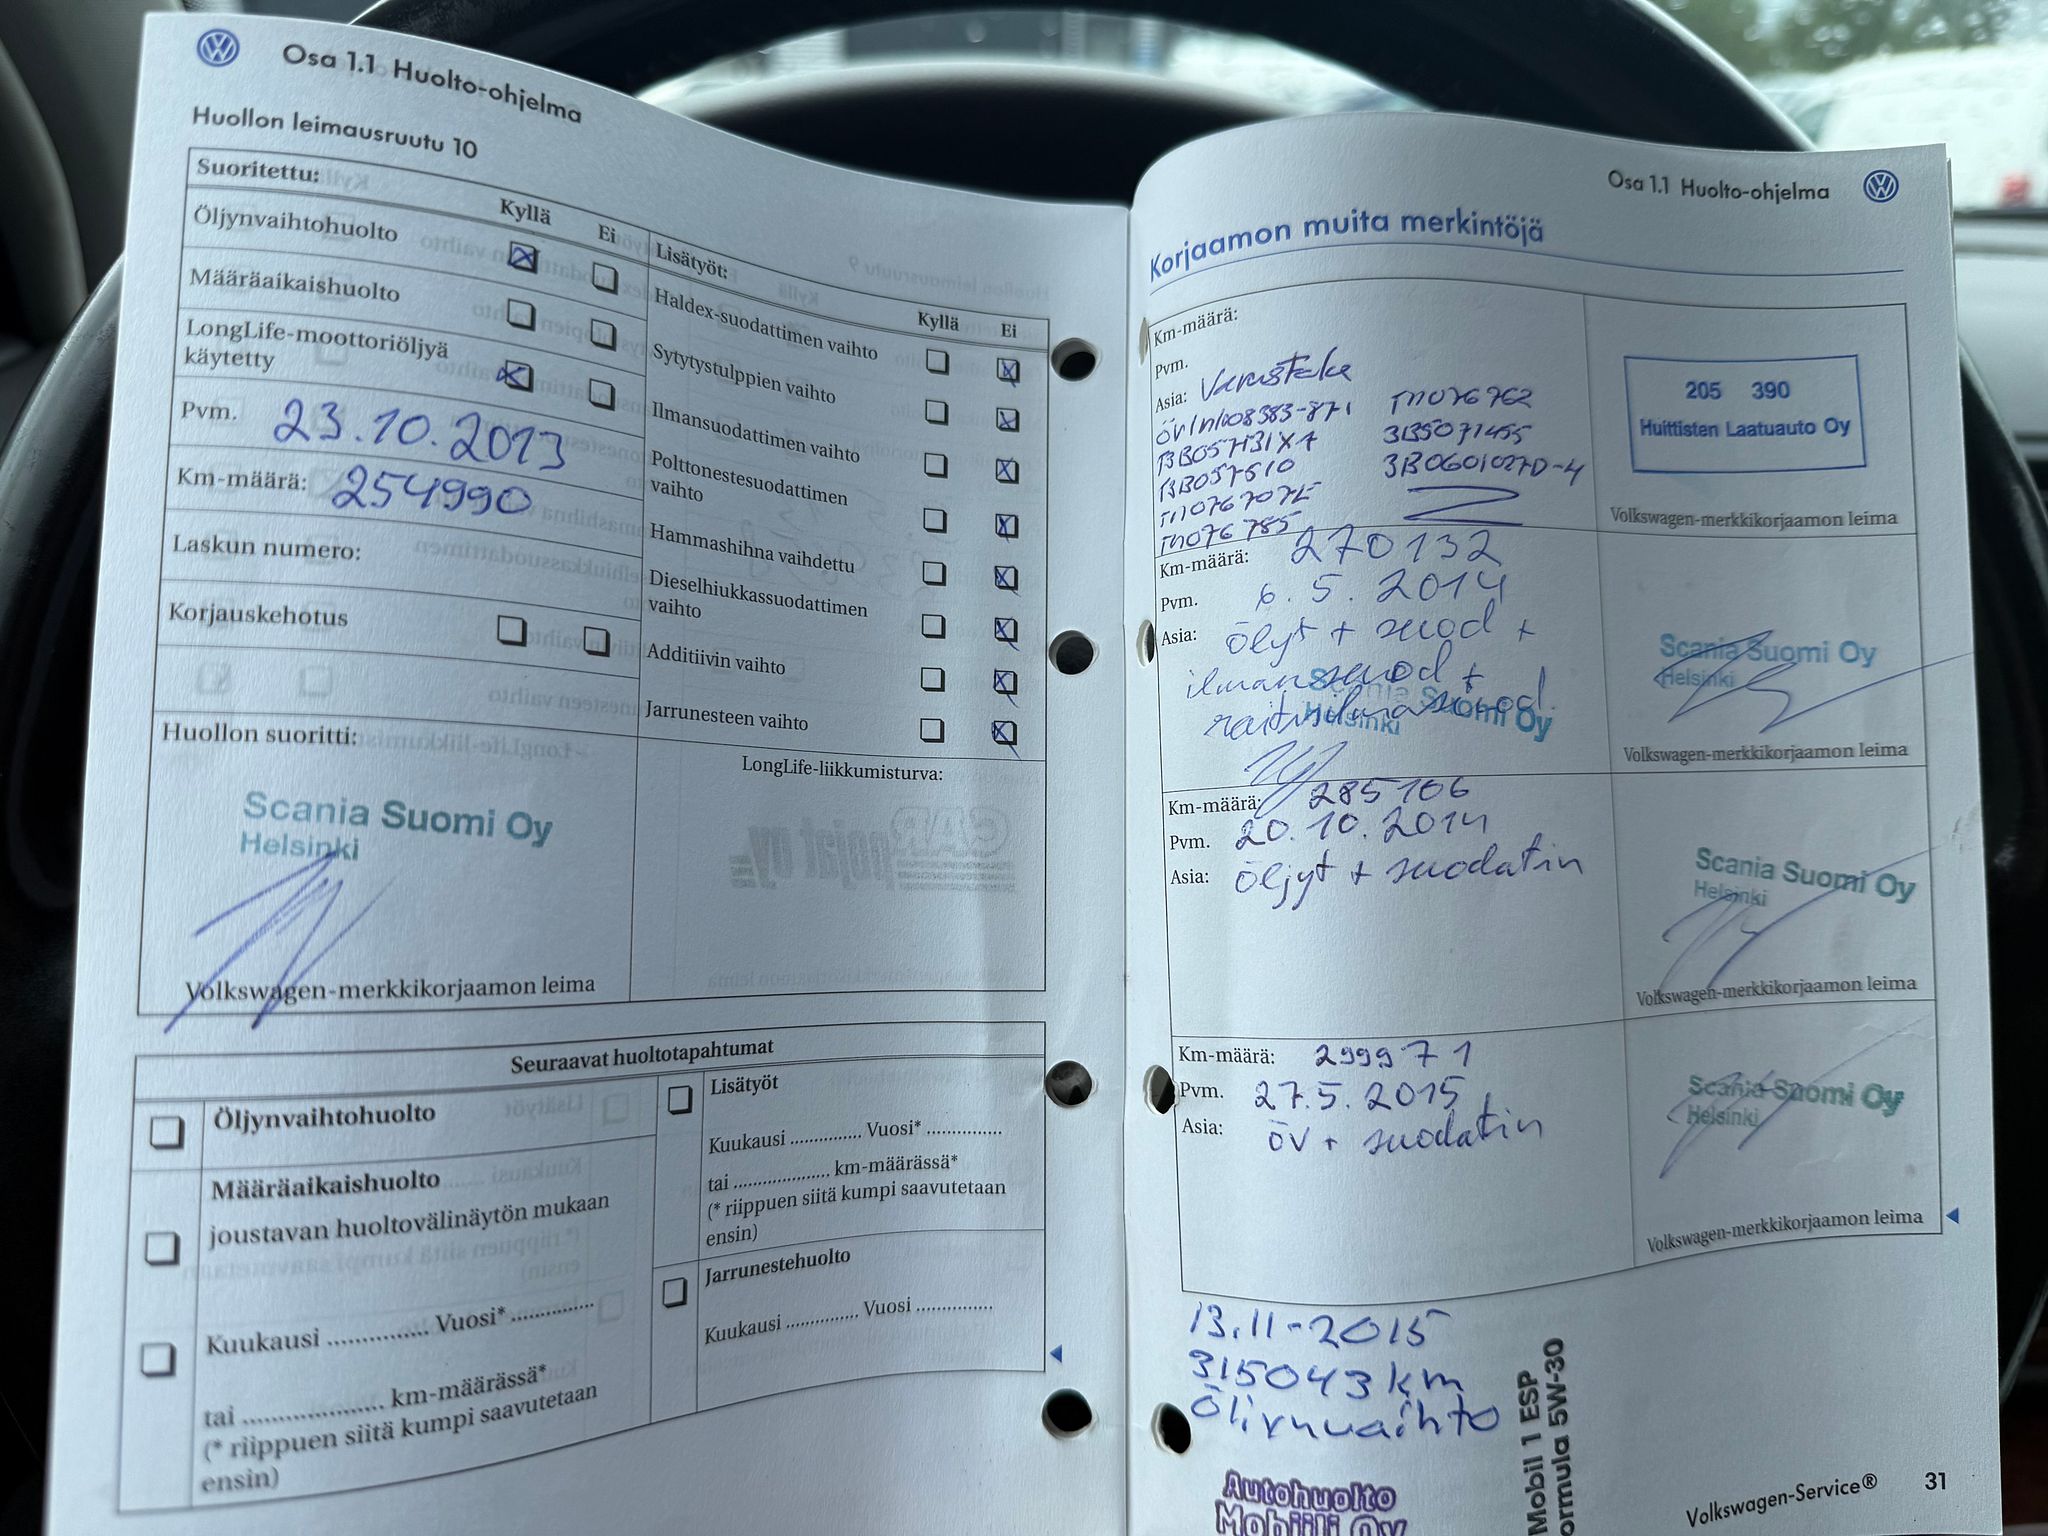 Osa 1.1 Huolto-ohjelma
Huollon leimausruutu 10
Suoritettu:
Kyllä Ei
Öljynvaihtohuolto
Määräaikaishuolto
LongLife-moottoriöljyä
käytetty
Pvm. 23.10.2013
Km-määrä: 254990
Laskun numero:
Korjauskehotus
Lisätyöt:
Kyllä Ei
Haldex-suodattimen vaihto
Sytytystulppien vaihto
Ilmansuodattimen vaihto
Polttonestesuodattimen
vaihto
Hammashihna vaihdettu
Dieselhiukkassuodattimen
vaihto
Additiivin vaihto
Jarrunesteen vaihto
Huollon suoritti:
Scania Suomi Oy
Helsinki
Volkswagen-merkkikorjaamon leima
LongLife-liikkumisturva:
Seuraavat huoltotapahtumat
Öljynvaihtohuolto
Määräaikaishuolto
joustavan huoltovälinäytön mukaan
Kuukausi ............... Vuosi* ...............
tai .................... km-määrässä*
(* riippuen siitä kumpi saavutetaan
ensin)
Lisätyöt
Kuukausi .............. Vuosi* ...............
tai ................... km-määrässä*
(* riippuen siitä kumpi saavutetaan
ensin)
Jarrunestehuolto
Kuukausi .............. Vuosi ...............
Osa 1.1 Huolto-ohjelma
Korjaamon muita merkintöjä
Km-määrä:
Pvm.
Asia:
205 390
Huittisten Laatuauto Oy
Volkswagen-merkkikorjaamon leima
Km-määrä: 270132
Pvm. 6.5.2014
Asia: öljyt + suod +
ilmansuod +
raitisilmasuod.
Scania Suomi Oy
Helsinki
Scania Suomi Oy
Helsinki
Volkswagen-merkkikorjaamon leima
Km-määrä: 285106
Pvm. 20.10.2014
Asia: öljyt + suodatin
Scania Suomi Oy
Helsinki
Volkswagen-merkkikorjaamon leima
Km-määrä: 299971
Pvm. 27.5.2015
Asia: öv + suodatin
Scania Suomi Oy
Helsinki
Volkswagen-merkkikorjaamon leima
13.11-2015
315043 km
Autohuolto
Mobiili Oy
Mobil 1 ESP
ormula 5W-30
Volkswagen-Service® 31